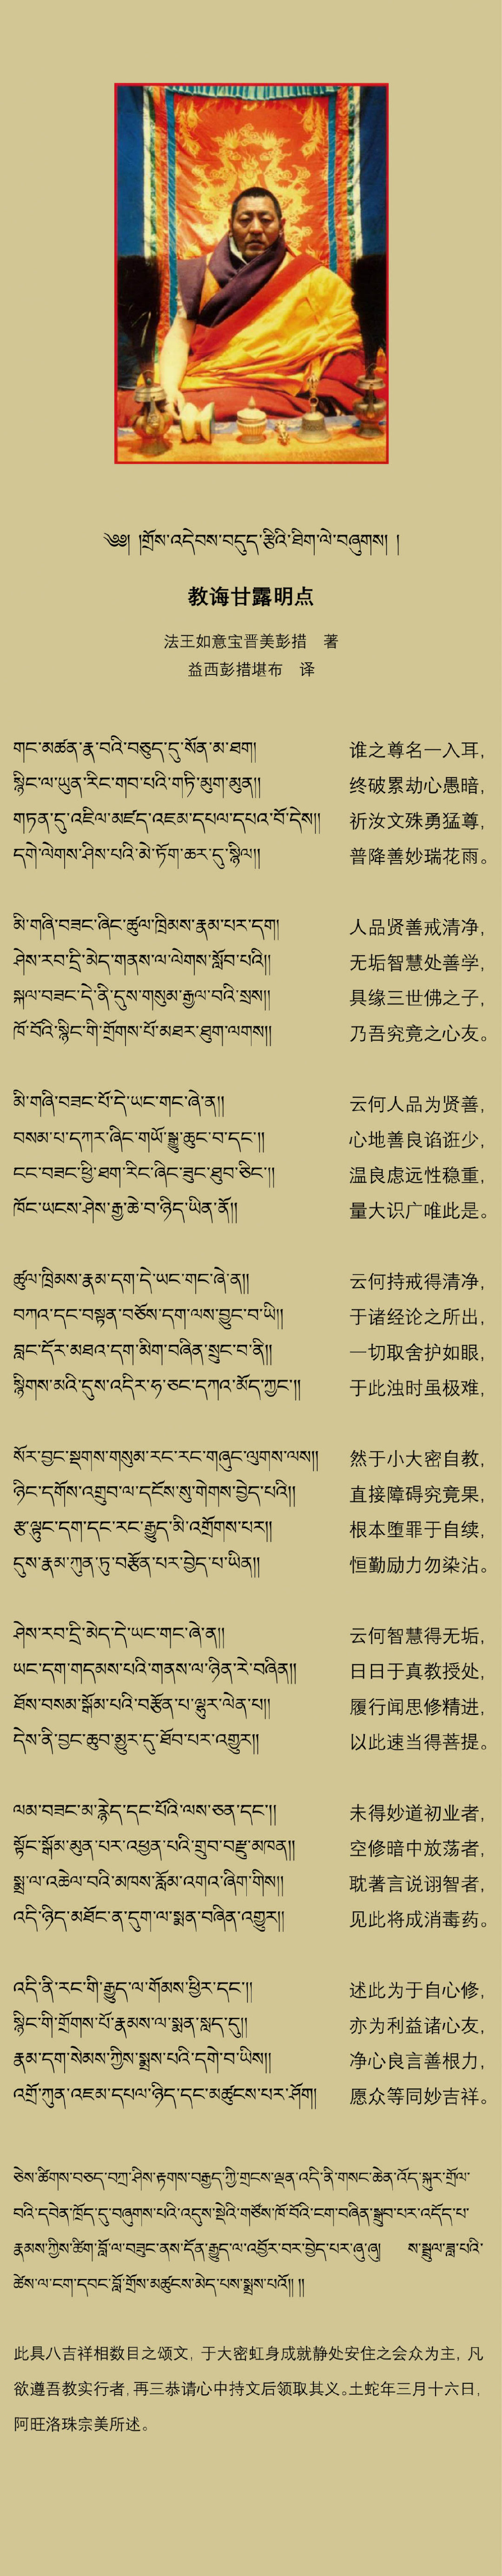 ༄༅། །གྲོས་འདེབས་བདུད་རྩིའི་ཐིག་ལེ་བཞུགས། །
教诲甘露明点
法王如意宝晋美彭措　著
益西彭措堪布　译
གང་མཚན་རྣ་བའི་བཅུད་དུ་སོན་མ་ཐག།	谁之尊名一入耳，
སྙིང་ལ་ཡུན་རིང་གབ་པའི་གཏི་མུག་མུན།།	终破累劫心愚暗，
གཏན་དུ་འཇིལ་མཛད་འཇམ་དཔལ་དཔའ་བོ་དེས།།	祈汝文殊勇猛尊，
དགེ་ལེགས་ཤིས་པའི་མེ་ཏོག་ཆར་དུ་སྙིལ།།	普降善妙瑞花雨。
མི་གཞི་བཟང་ཞིང་ཚུལ་ཁྲིམས་རྣམ་པར་དག།	人品贤善戒清净，
ཤེས་རབ་དྲི་མེད་གནས་ལ་ལེགས་སློབ་པའི།།	无垢智慧处善学，
སྐལ་བཟང་དེ་ནི་དུས་གསུམ་རྒྱལ་བའི་སྲས།།	具缘三世佛之子，
ཁོ་བོའི་སྙིང་གི་གྲོགས་པོ་མཐར་ཐུག་ལགས།།	乃吾究竟之心友。
མི་གཞི་བཟང་པོ་དེ་ཡང་གང་ཞེ་ན།།	云何人品为贤善，
བསམ་པ་དཀར་ཞིང་གཡོ་སྒྱུ་ཆུང་བ་དང་།།	心地善良谄诳少，
ངང་བཟང་ཕྱི་ཐག་རིང་ཞིང་ཟུང་ཐུབ་ཅིང་།།	温良虑远性稳重，
ཁོང་ཡངས་ཤེས་རྒྱ་ཆེ་བ་ཉིད་ཡིན་ནོ།།	量大识广唯此是。
ཚུལ་ཁྲིམས་རྣམ་དག་དེ་ཡང་གང་ཞེ་ན།།	云何持戒得清净，
བཀའ་དང་བསྟན་བཅོས་དག་ལས་བྱུང་བ་ཡི།།	于诸经论之所出，
བླང་དོར་མཐའ་དག་མིག་བཞིན་སྲུང་བ་ནི།།	一切取舍护如眼，
སྙིགས་མའི་དུས་འདིར་ཧ་ཅང་དཀའ་མོད་ཀྱང་།།	于此浊时虽极难，
སོར་བྱང་སྔགས་གསུམ་རང་རང་གཞུང་ལུགས་ལས།།	然于小大密自教，
ཉིང་དགོས་འགྲུབ་ལ་དངོས་སུ་གེགས་བྱེད་པའི།།	直接障碍究竟果，
རྩ་ལྟུང་དག་དང་རང་རྒྱུད་མི་འགྲོགས་པར།།	根本堕罪于自续，
དུས་རྣམ་ཀུན་ཏུ་བརྩོན་པར་བྱེད་པ་ཡིན།།	恒勤励力勿染沾。
ཤེས་རབ་དྲི་མེད་དེ་ཡང་གང་ཞེ་ན།།	云何智慧得无垢，
ཡང་དག་གདམས་པའི་གནས་ལ་ཉིན་རེ་བཞིན།།	日日于真教授处，
ཐོས་བསམ་སྒོམ་པའི་བརྩོན་པ་ལྷུར་ལེན་པ།།	履行闻思修精进，
དེས་ནི་བྱང་ཆུབ་མྱུར་དུ་ཐོབ་པར་འགྱུར།།	以此速当得菩提。
ལམ་བཟང་མ་རྙེད་དང་པོའི་ལས་ཅན་དང་།།	未得妙道初业者，
སྟོང་སྒོམ་མུན་པར་འཕྱན་པའི་གྲུབ་བརྫུ་མཁན།།	空修暗中放荡者，
སྨྲ་ལ་འཆེལ་བའི་མཁས་རློམ་འགའ་ཞིག་གིས།།	耽著言说诩智者，
འདི་ཉིད་མཐོང་ན་དུག་ལ་སྨན་བཞིན་འགྱུར།།	见此将成消毒药。
འདི་ནི་རང་གི་རྒྱུད་ལ་གོམས་ཕྱིར་དང་།།	述此为于自心修，
སྙིང་གི་གྲོགས་པོ་རྣམས་ལ་སྨན་སླད་དུ།།	亦为利益诸心友，
རྣམ་དག་སེམས་ཀྱིས་སྨྲས་པའི་དགེ་བ་ཡིས།།	净心良言善根力，
འགྲོ་ཀུན་འཇམ་དཔལ་ཉིད་དང་མཚུངས་པར་ཤོག།	愿众等同妙吉祥。
ཅེས་ཚིགས་བཅད་བཀྲ་ཤིས་རྟགས་བརྒྱད་ཀྱི་གྲངས་ལྡན་འདི་ནི་གསང་ཆེན་འོད་སྐུར་གྲོལ་
བའི་དབེན་ཁྲོད་དུ་བཞུགས་པའི་འདུས་སྡེའི་གཙོས་ཁོ་བོའི་ངག་བཞིན་སྒྲུབ་པར་འདོད་པ་
རྣམས་ཀྱིས་ཚིག་བློ་ལ་བཟུང་ནས་དོན་རྒྱུད་ལ་འབྱོར་བར་བྱེད་པར་ཞུ་ཞུ། ས་སྦྲུལ་ཟླ་པའི་
ཚེས་ལ་ངག་དབང་བློ་གྲོས་མཚུངས་མེད་པས་སྨྲས་པའོ།། །།
此具八吉祥相数目之颂文，于大密虹身成就静处安住之会众为主，凡
欲遵吾教实行者，再三恭请心中持文后领取其义。土蛇年三月十六日，
阿旺洛珠宗美所述。